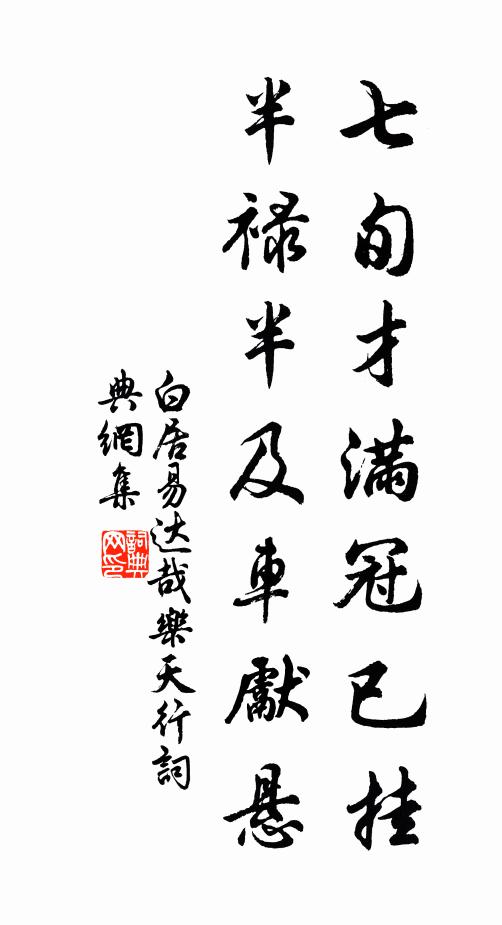 七旬才滿冠已挂
半禄半及車獻悬
白居易达哉樂天行詞
典網集
詞典
网印